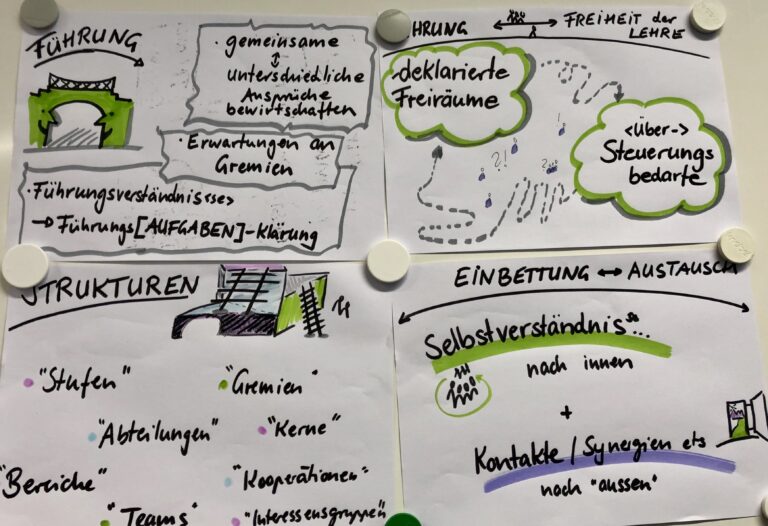 FÜHRUNG
· gemeinsame
↕
unterschiedliche
Ansprüche
bewirtschaften
· Erwartungen an
Gremien
· Führungsverständnis<se>
→ Führungs[AUFGABEN]-Klärung
HRUNG ↔ FREIHEIT der
LEHRE
deklarierte
Freiräume
?!
<über->
Steuerungs
bedarfe
STRUKTUREN
"Stufen"
"Gremien"
"Abteilungen"
"Kerne"
"Bereiche"
"Kooperationen"
"Teams"
"Interessensgruppen"
EINBETTUNG ↔ AUSTAUSCH
Selbstverständnis se...
nach innen
+
Kontakte / Synergien etc
nach "aussen"